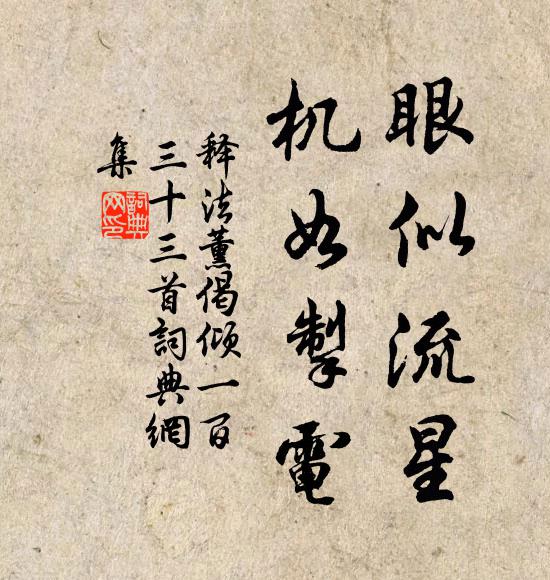 眼似流星
机如掣電
释法薰偈倾一百
三十三首詞典網
集
詞典網印